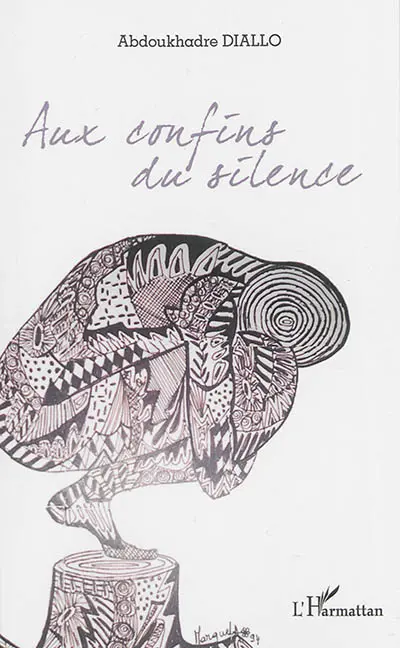 Abdoukhadre DIALLO
Aux confins
du silence
L'Harmattan